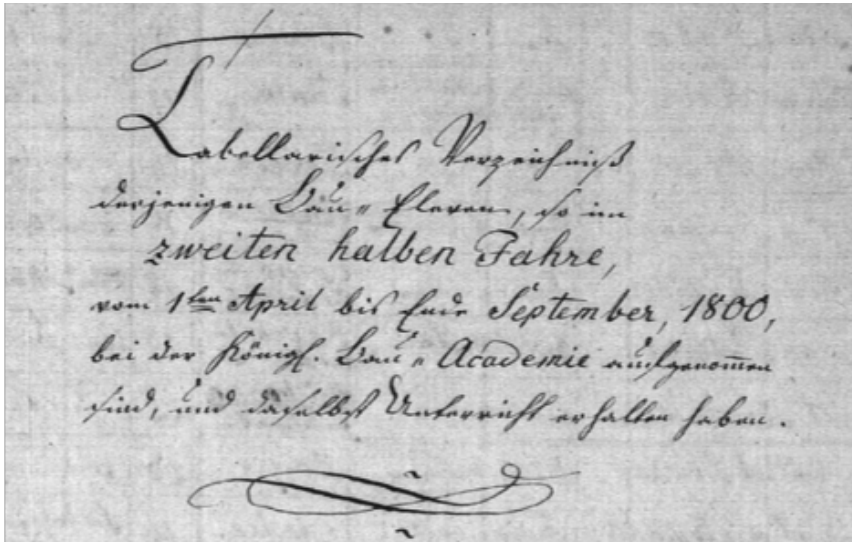 Tabellarisches Verzeichniß
derjenigen Bau-Eleven, so im
zweiten halben Jahre,
vom 1ten April bis Ende September, 1800,
bei der Königl. Bau-Academie aufgenommen
sind, und daselbst Unterricht erhalten haben.